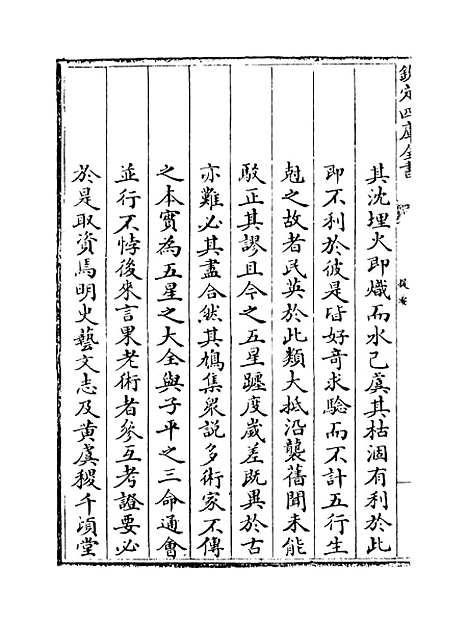 欽定四庫全書
提要
其沈埋火即熾而水已虞其枯涸有利於此
即不利於彼是皆好奇求驗而不計五行生
尅之故者民英於此類大抵沿襲舊聞未能
駮正其謬且今之五星躔度歲差既異於古
亦難必其盡合然其鳩集衆說多術家不傳
之本實為五星之大全與子平之三命通會
並行不悖後來言果老術者參互考證要必
於是取資焉明史藝文志及黄虞稷千頃堂